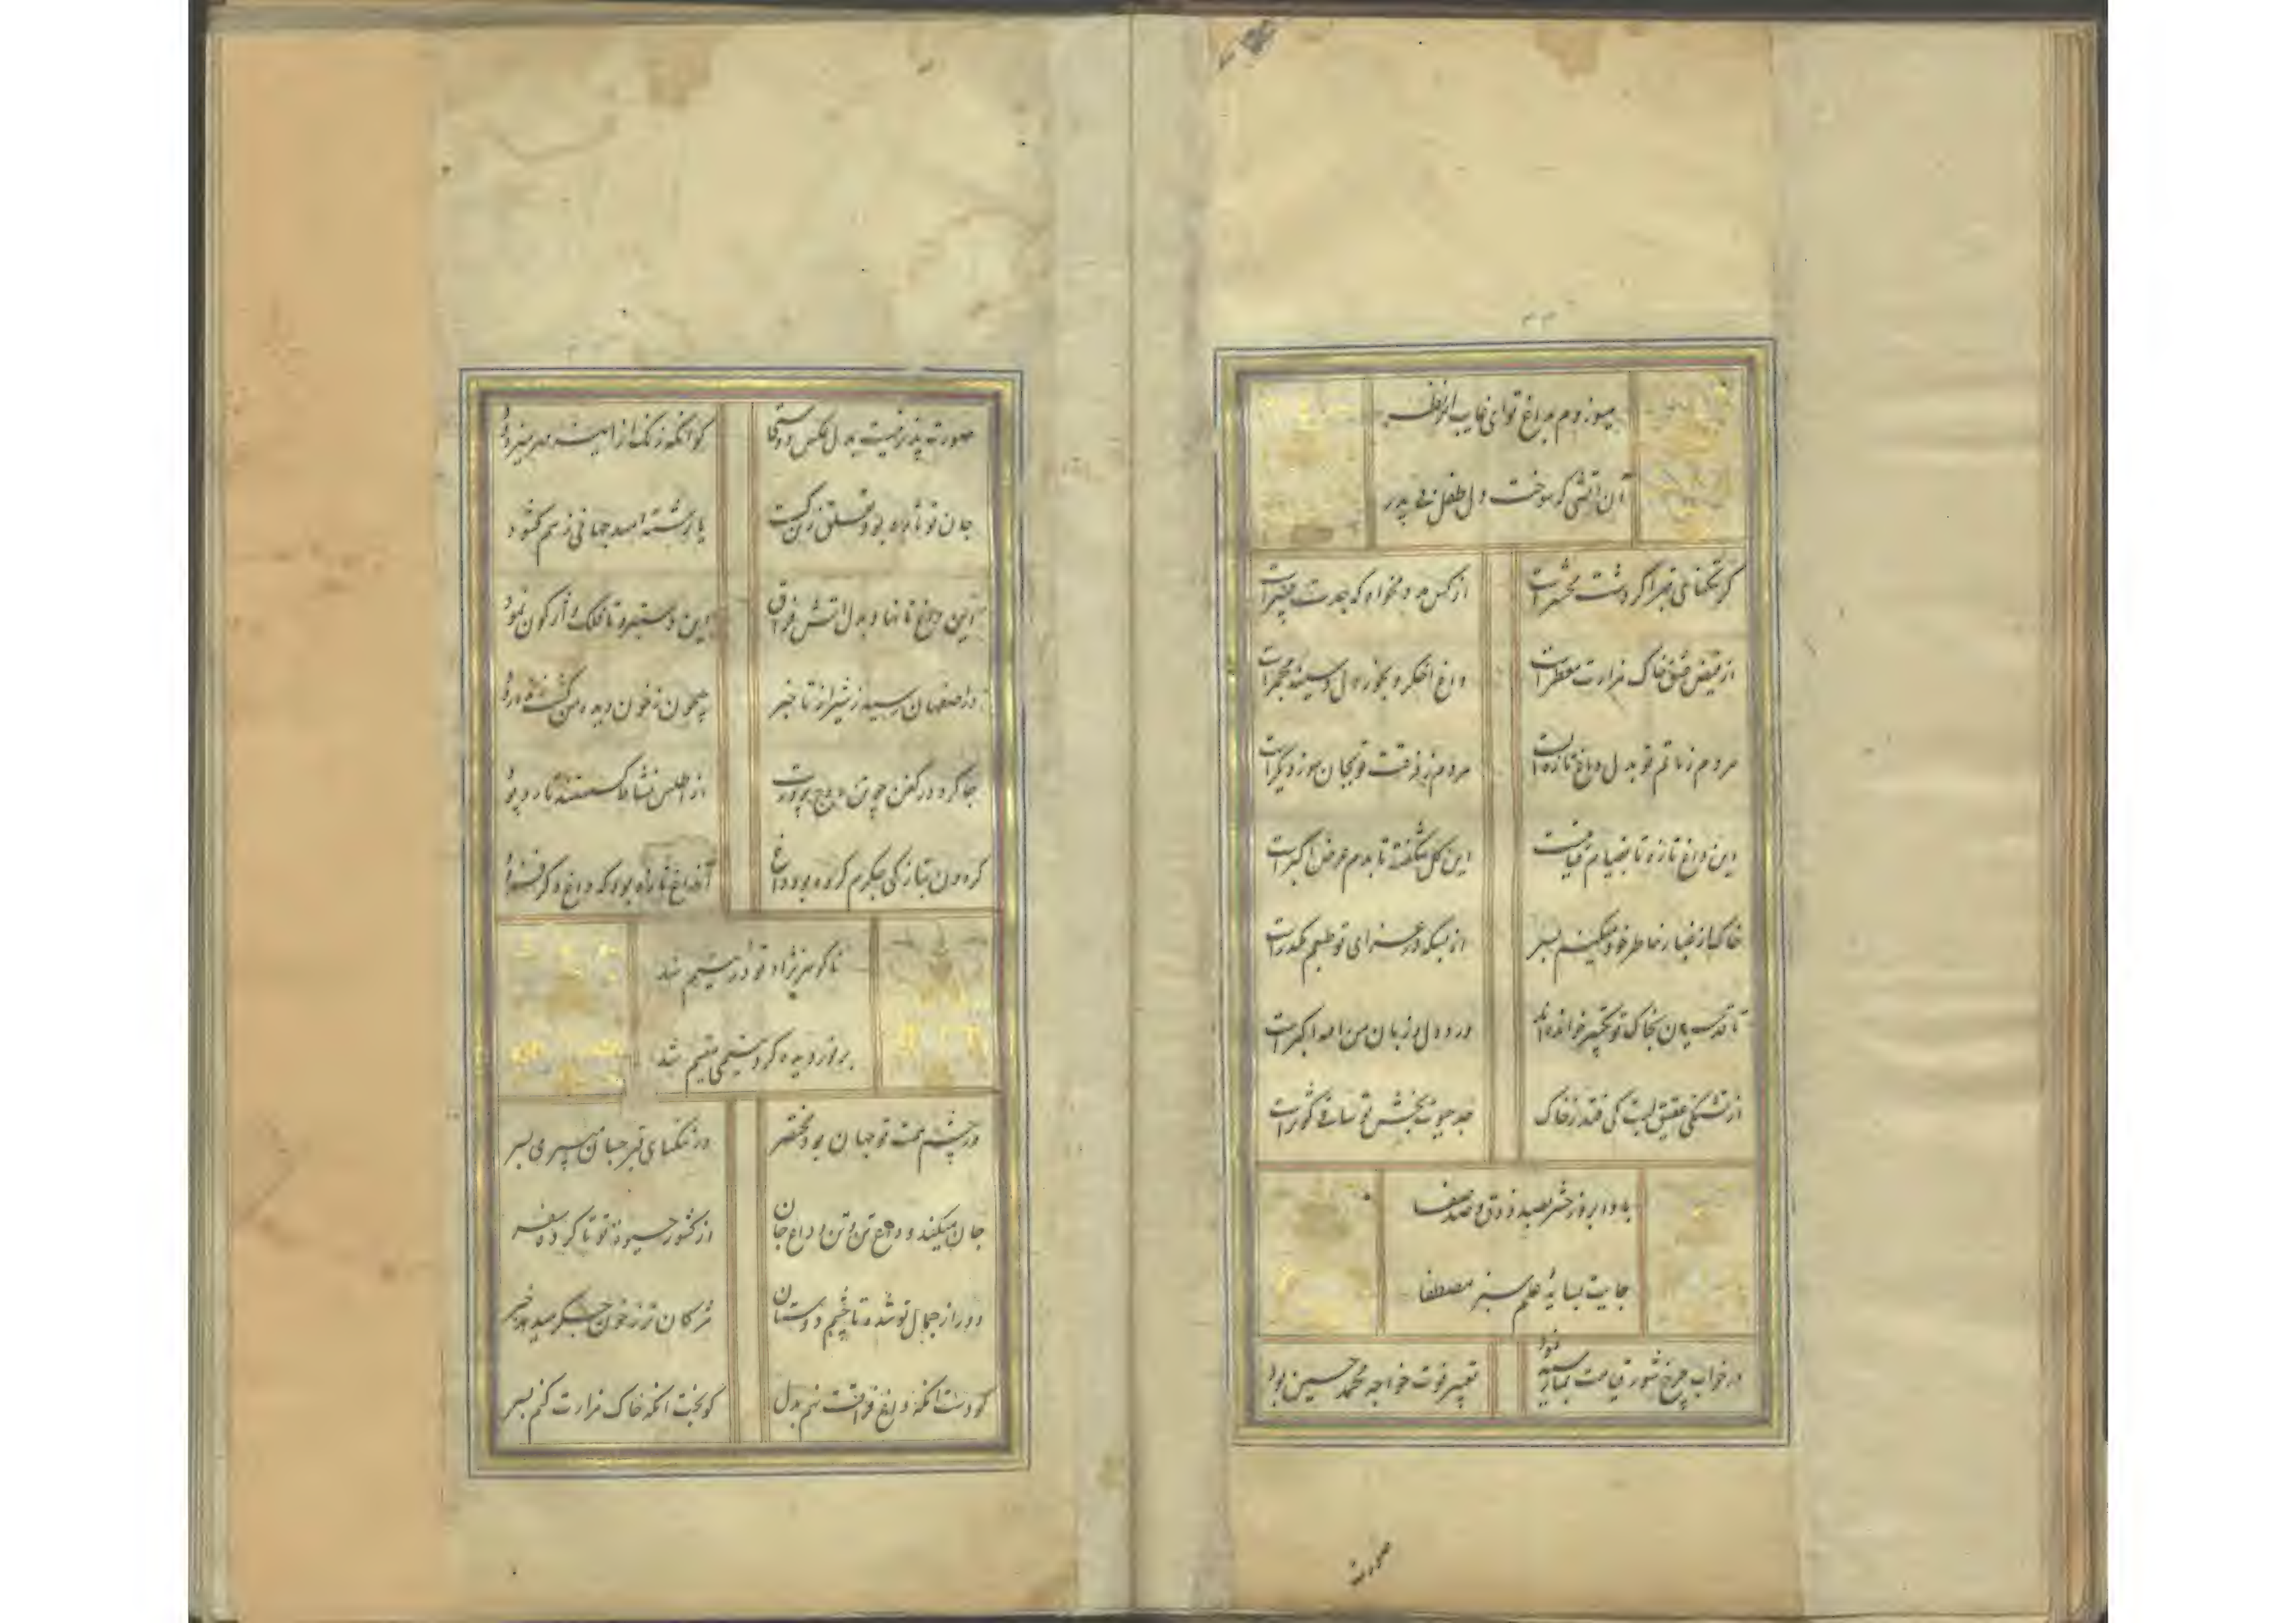 میسوزدم بداغ تو ای غایب از نظر
آن آتشی که سوخت دل طفل بی پدر
گر تنگنای قبر اگر دشت محشر است
از کس مدد مخواه که جدت پیمبر است
از فیض عشق خاک مزارت معطر است
داغ اخگر و بخور دل و سینه مجمر است
مردم ز ماتم تو بدل داغ تازه است
مردم ز فرقت تو بجان سوز دیگر است
این داغ تازه تا بقیام قیامت
این گل شگفته تا بدم عرض اکبر است
خاک از غبار خاطر خود میکنم بسر
از بسکه در عزای تو طبعم مکدر است
تا قدسیان بخاک تو تکبیر خوانده‌اند
ورد دل و زبان من الله اکبر است
از تشنگی عقیق لبت کی فتد ز خاک
جد حیوت بخش تو ساقی کوثر است
بادا بروز حشر بصد ذوق و صد صفا
جایت بسایه علم سبز مصطفا
در خواب چرخ شور قیامت بما نمود
تعبیر فوت خواجه محمد حسین بود
صورت
صورت پذیر نیست بدل عکس دوستی
کو آنکه زنک از آینه مهر میزدود
جان تو تا
یا رشته امید جهانی ز هم گشود
این داغ تا نهاد بدل آتش فراق
این دستبرد تا فلک واژگون نمود
در اصفهان رسید ز شیراز تا خبر
جیحون ز خون دیده من گشت زنده رود
جا کرد در کفن چو تن
از اطلس نشاط گسستند تار و پود
گردون بتازگی جگرم کرده بود داغ
آن داغ تازه بود که داغ دگر فزود
تا گوهر نژاد تو در یتیم شد
بر نور دیده گرد یتیمی مقیم شد
در چشم همت تو جهان بود مختصر
در تنگنای قبر چسان می‌بری بسر
جان میکند وداع تن و تن وداع جان
از کشور حیوة تو تا کرده‌ٔ سفر
دور از جمال تو شده تا چشم دوستان
مژکان تر ز خون جگر میدهد خبر
کو دست آنکه داغ فراقت نهم بدل
کو بخت آنکه خاک مزارت کنم بسر